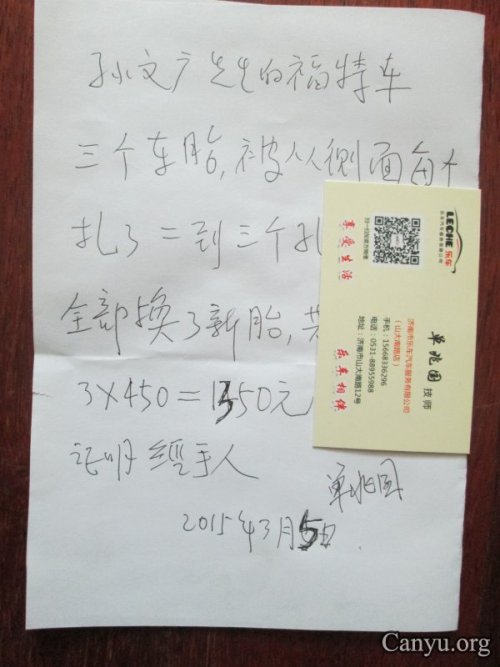 孙文广先生的福特车
三个车胎,被人从侧面每个
扎了二到三个孔
全部换了新胎,共
3×450=1350元
证明 经手人
单兆国
2015年3月5日
LECHE 乐车
乐车汽车服务有限公司
享受生活
乐车相伴
单兆国 技师
济南市乐车汽车服务有限公司
(山大南路店)
手机:15668336296
电话:0531-88955988
地址:济南市山大南路12号
Canyu.org